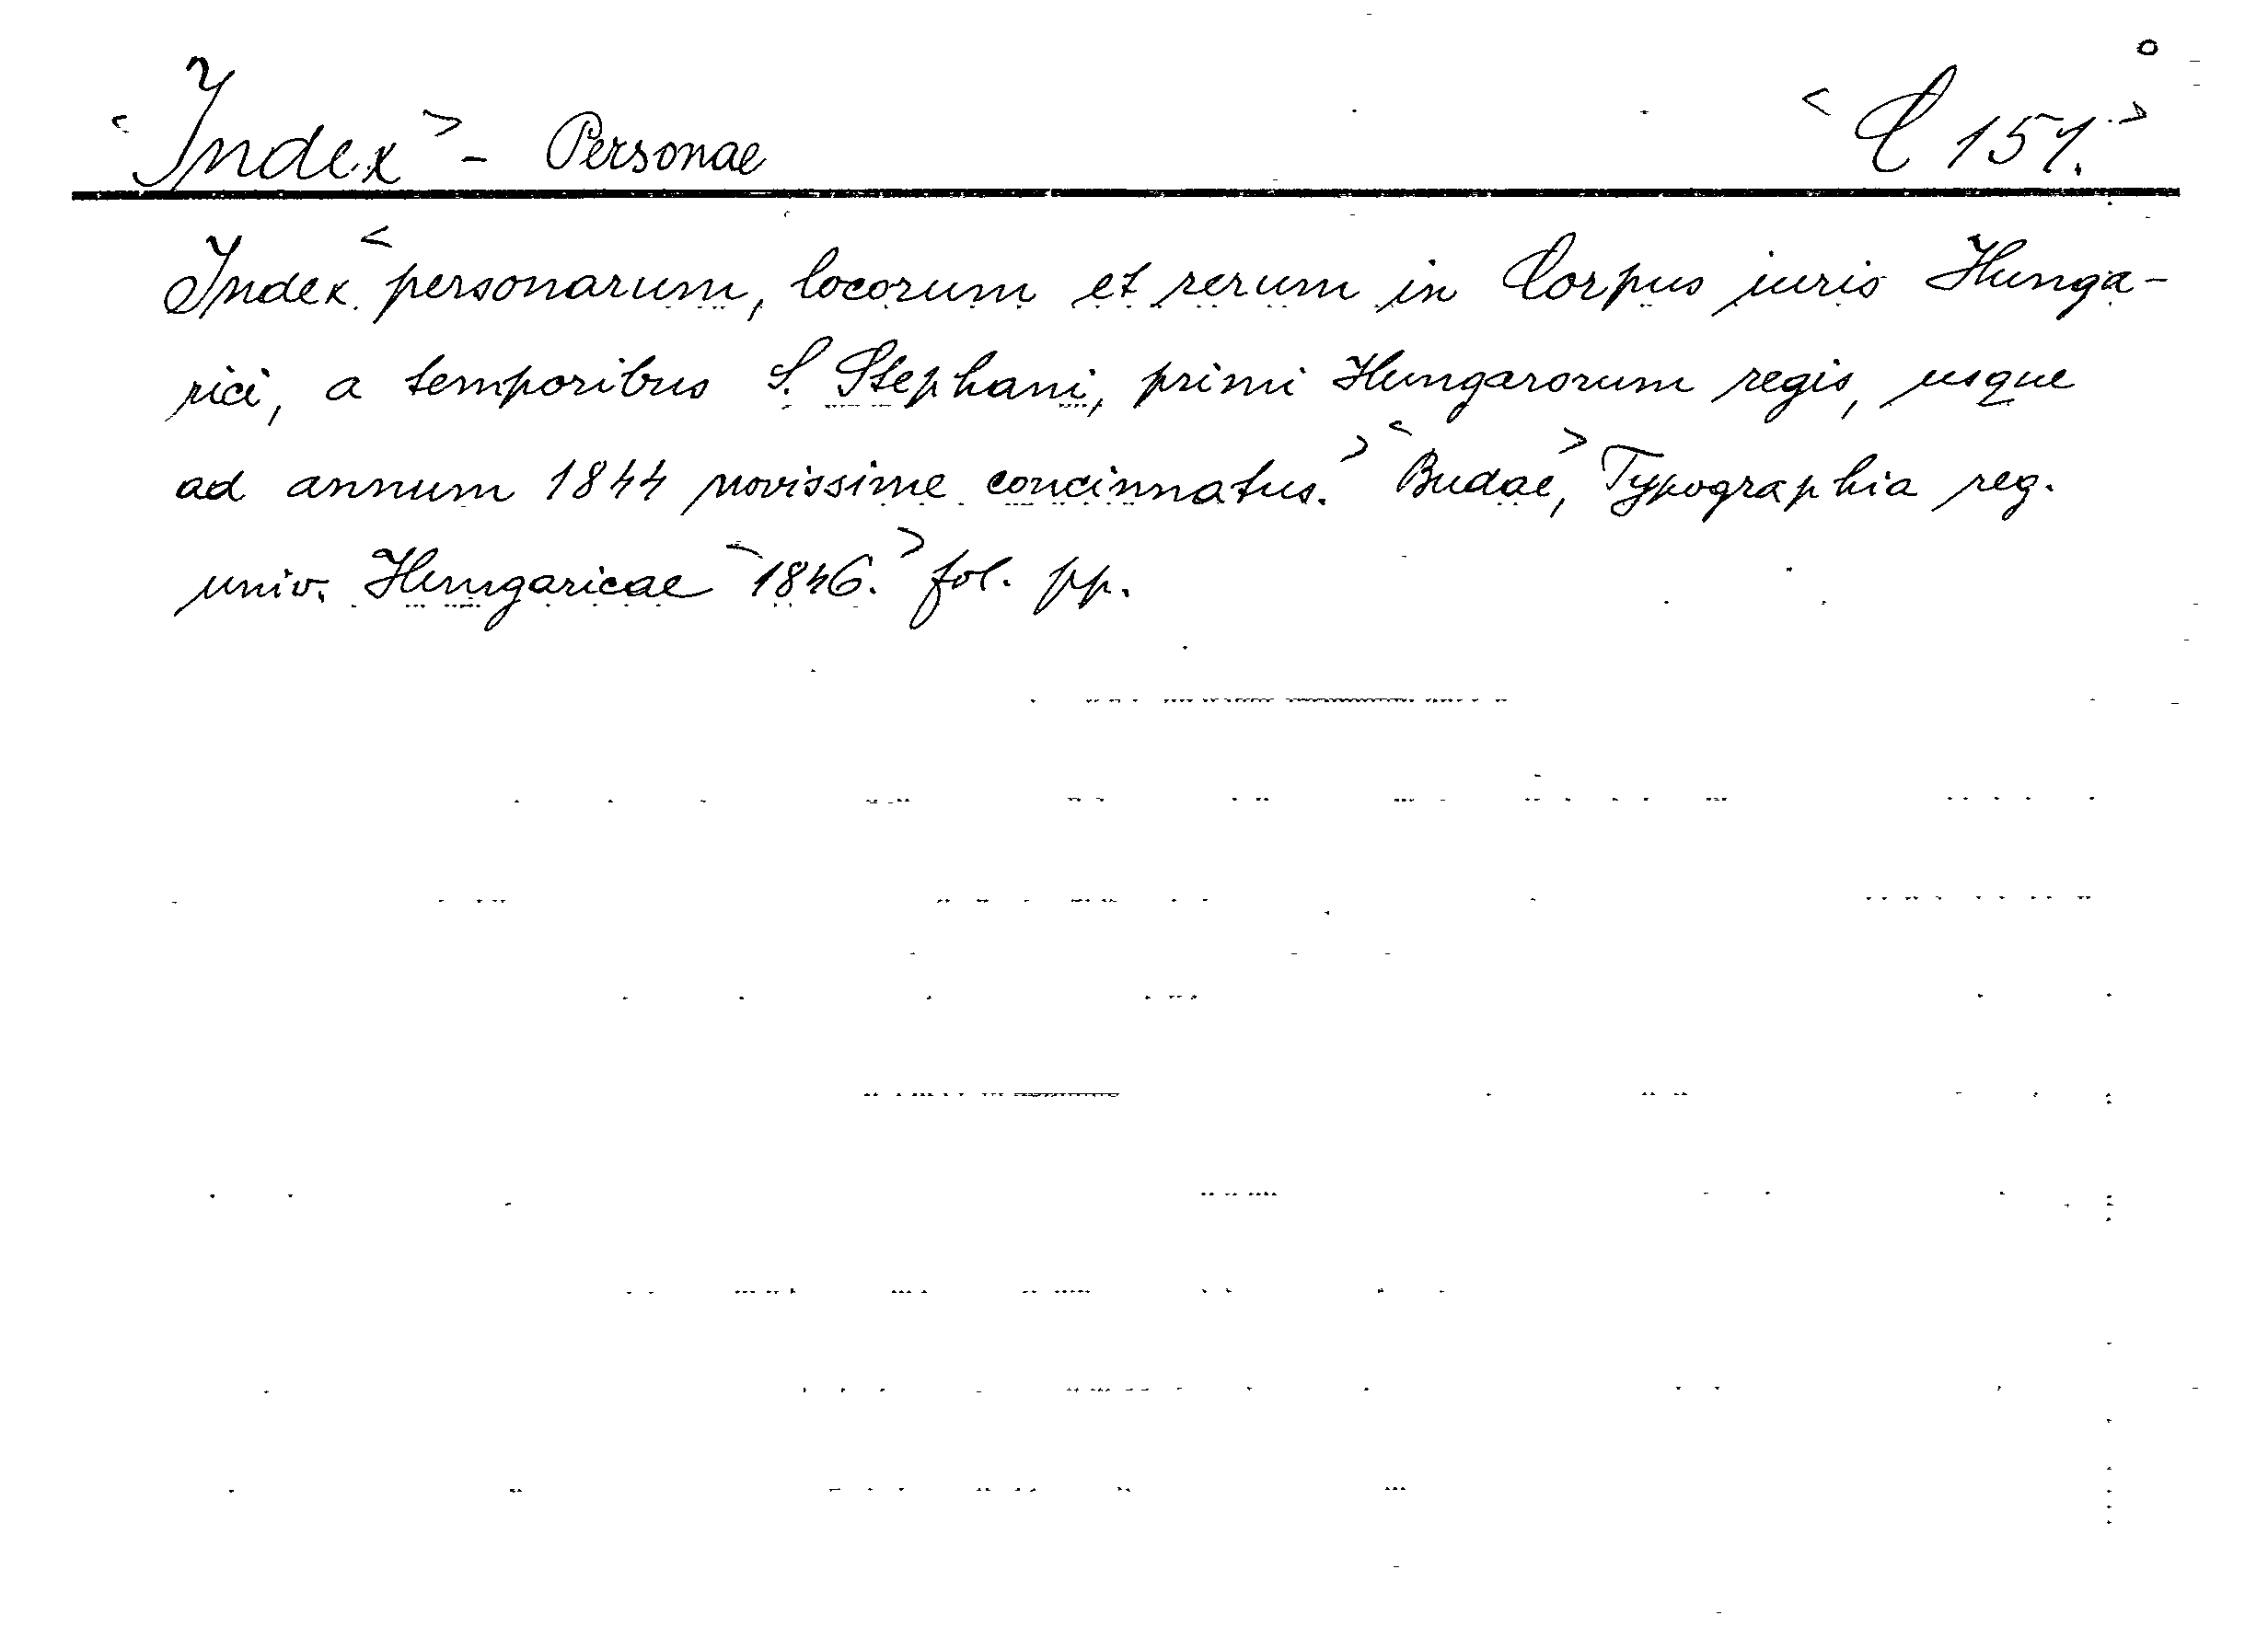 <Index> - Personae <C 151.>
Index <personarum, locorum et rerum in Corpus iuris Hunga-
rici, a temporibus S. Stephani, primi Hungarorum regis, usque
ad annum 1844 novissime concinnatus.> <Budae,> Typographia reg.
univ. Hungaricae <1846.> fol. pp.